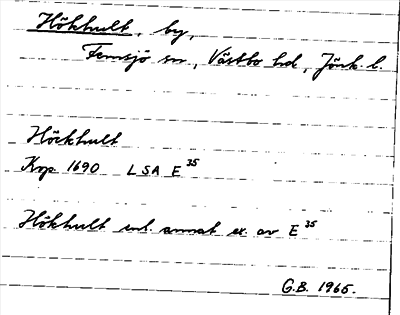 Hökhult, by,
Femsjö sn, Västbo hd, Jönk. l.
Höckhult
Kop 1690 LSA E 35
Hökhult enl. annat ex. av E 35
G.B. 1965.